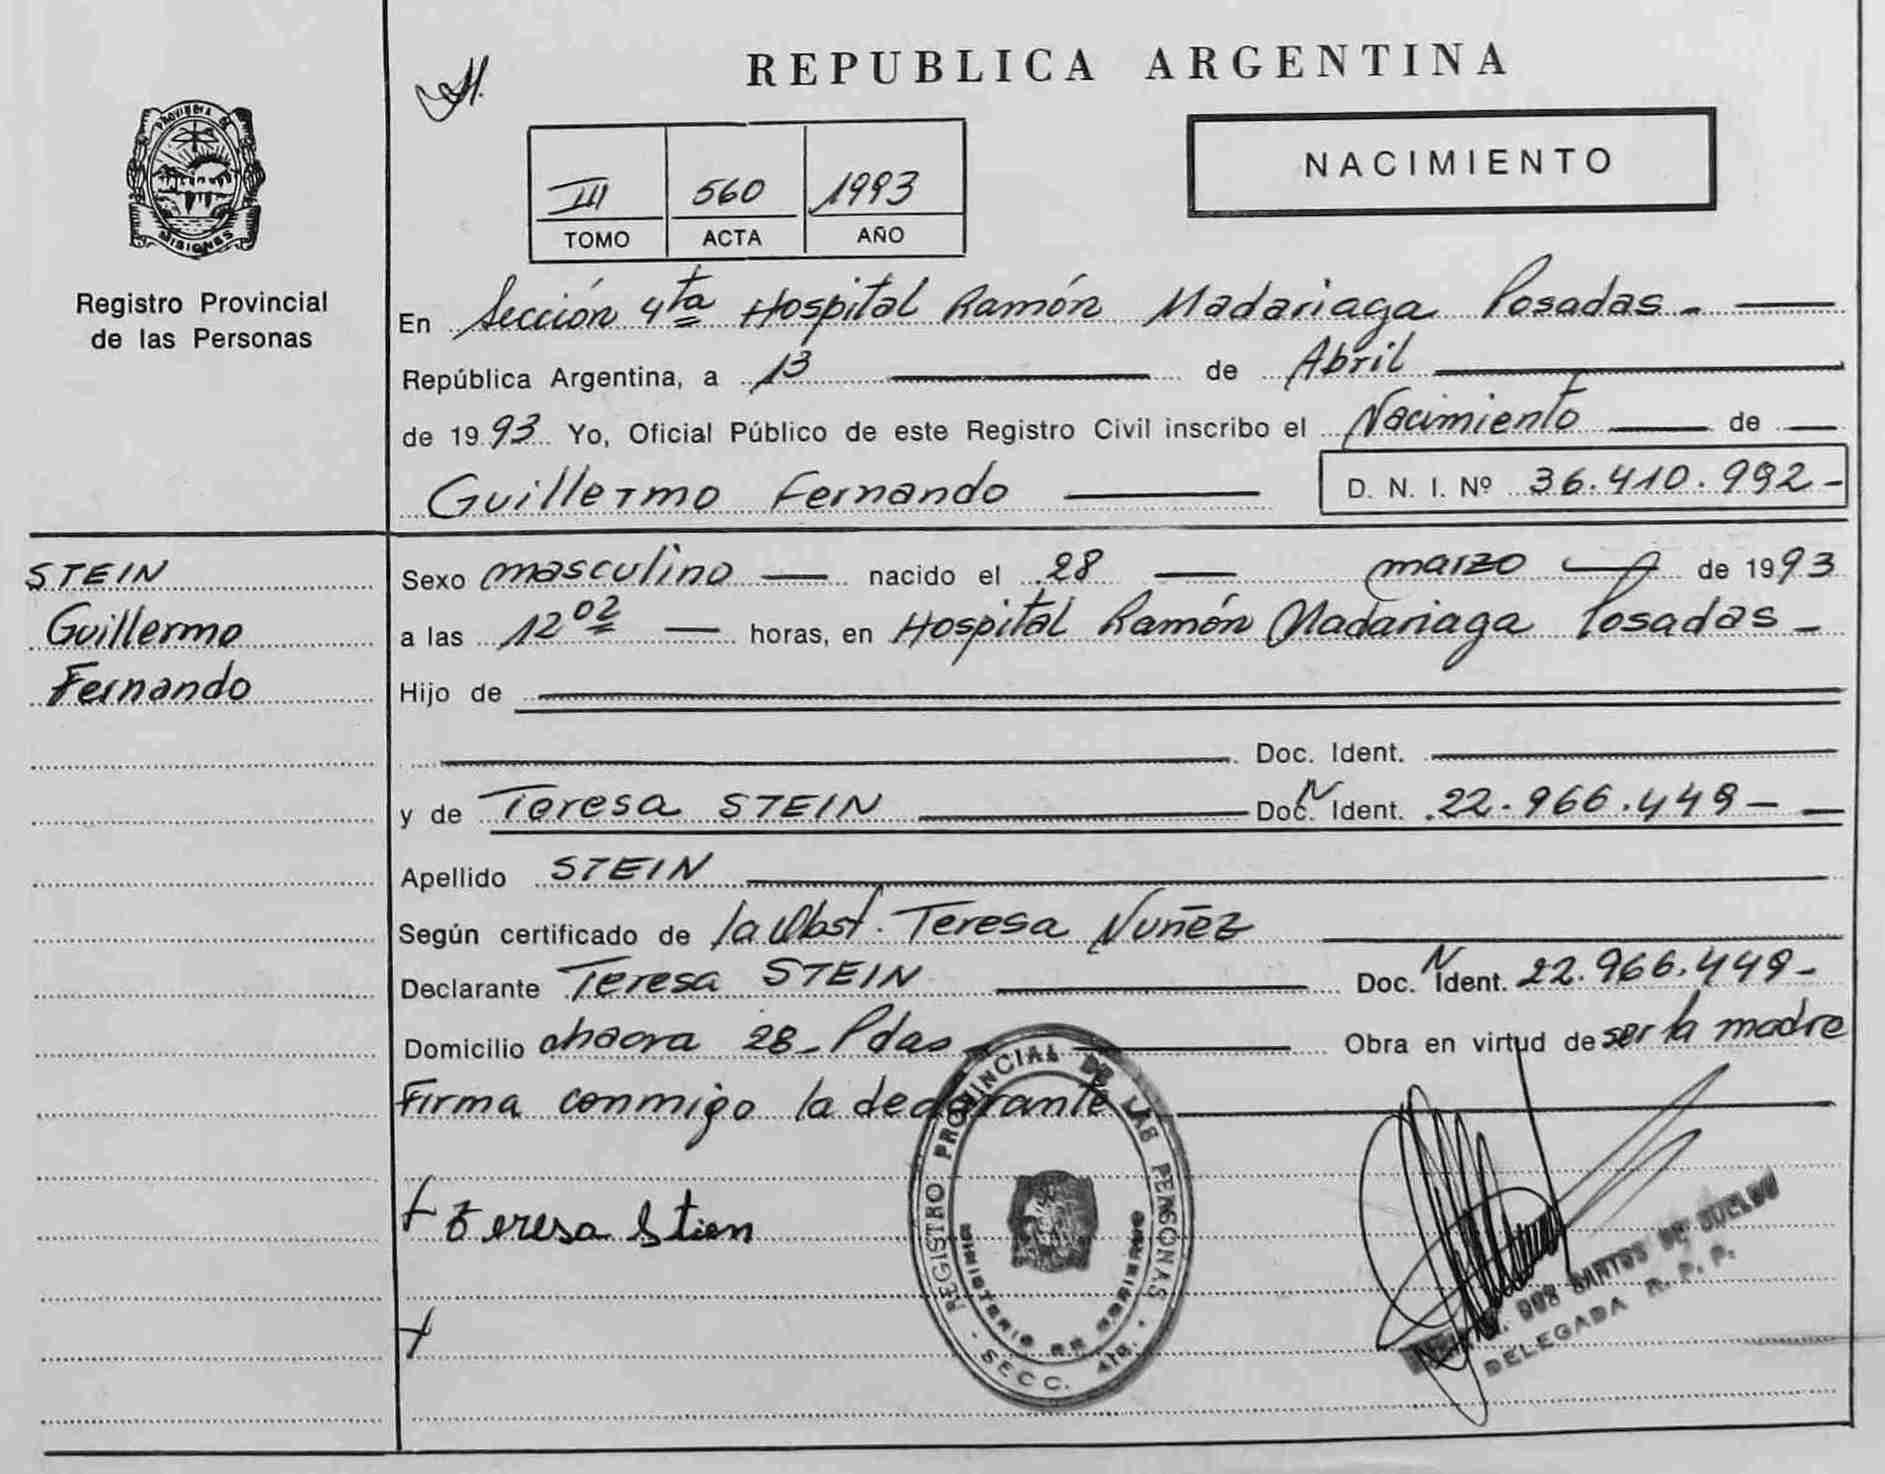 REPUBLICA ARGENTINA
PROVINCIA DE
MISIONES
Registro Provincial
de las Personas
NACIMIENTO
III 560 1993
TOMO ACTA AÑO
En Sección 4ta Hospital Ramón Madariaga Posadas -
República Argentina, a 13 de Abril
de 1993 Yo, Oficial Público de este Registro Civil inscribo el Nacimiento de
Guillermo Fernando D. N. I. Nº 36.410.992-
STEIN
Guillermo
Fernando
Sexo masculino nacido el 28 marzo de 1993
a las 12 02 horas, en Hospital Ramón Madariaga Posadas -
Hijo de
Doc. Ident.
y de Teresa STEIN Doc. N Ident. 22.966.449-
Apellido STEIN
Según certificado de la Obst. Teresa Nuñez
Declarante Teresa STEIN Doc. N Ident. 22.966.449-
Domicilio chacra 28- Pdas Obra en virtud de ser la madre
Firma conmigo la declarante
+ teresa Stien
+
REGISTRO PROVINCIAL DE LAS PERSONAS
MINISTERIO DE GOBIERNO
SECC. 4ta.
DOS SANTOS DE
DELEGADA R. P. P.